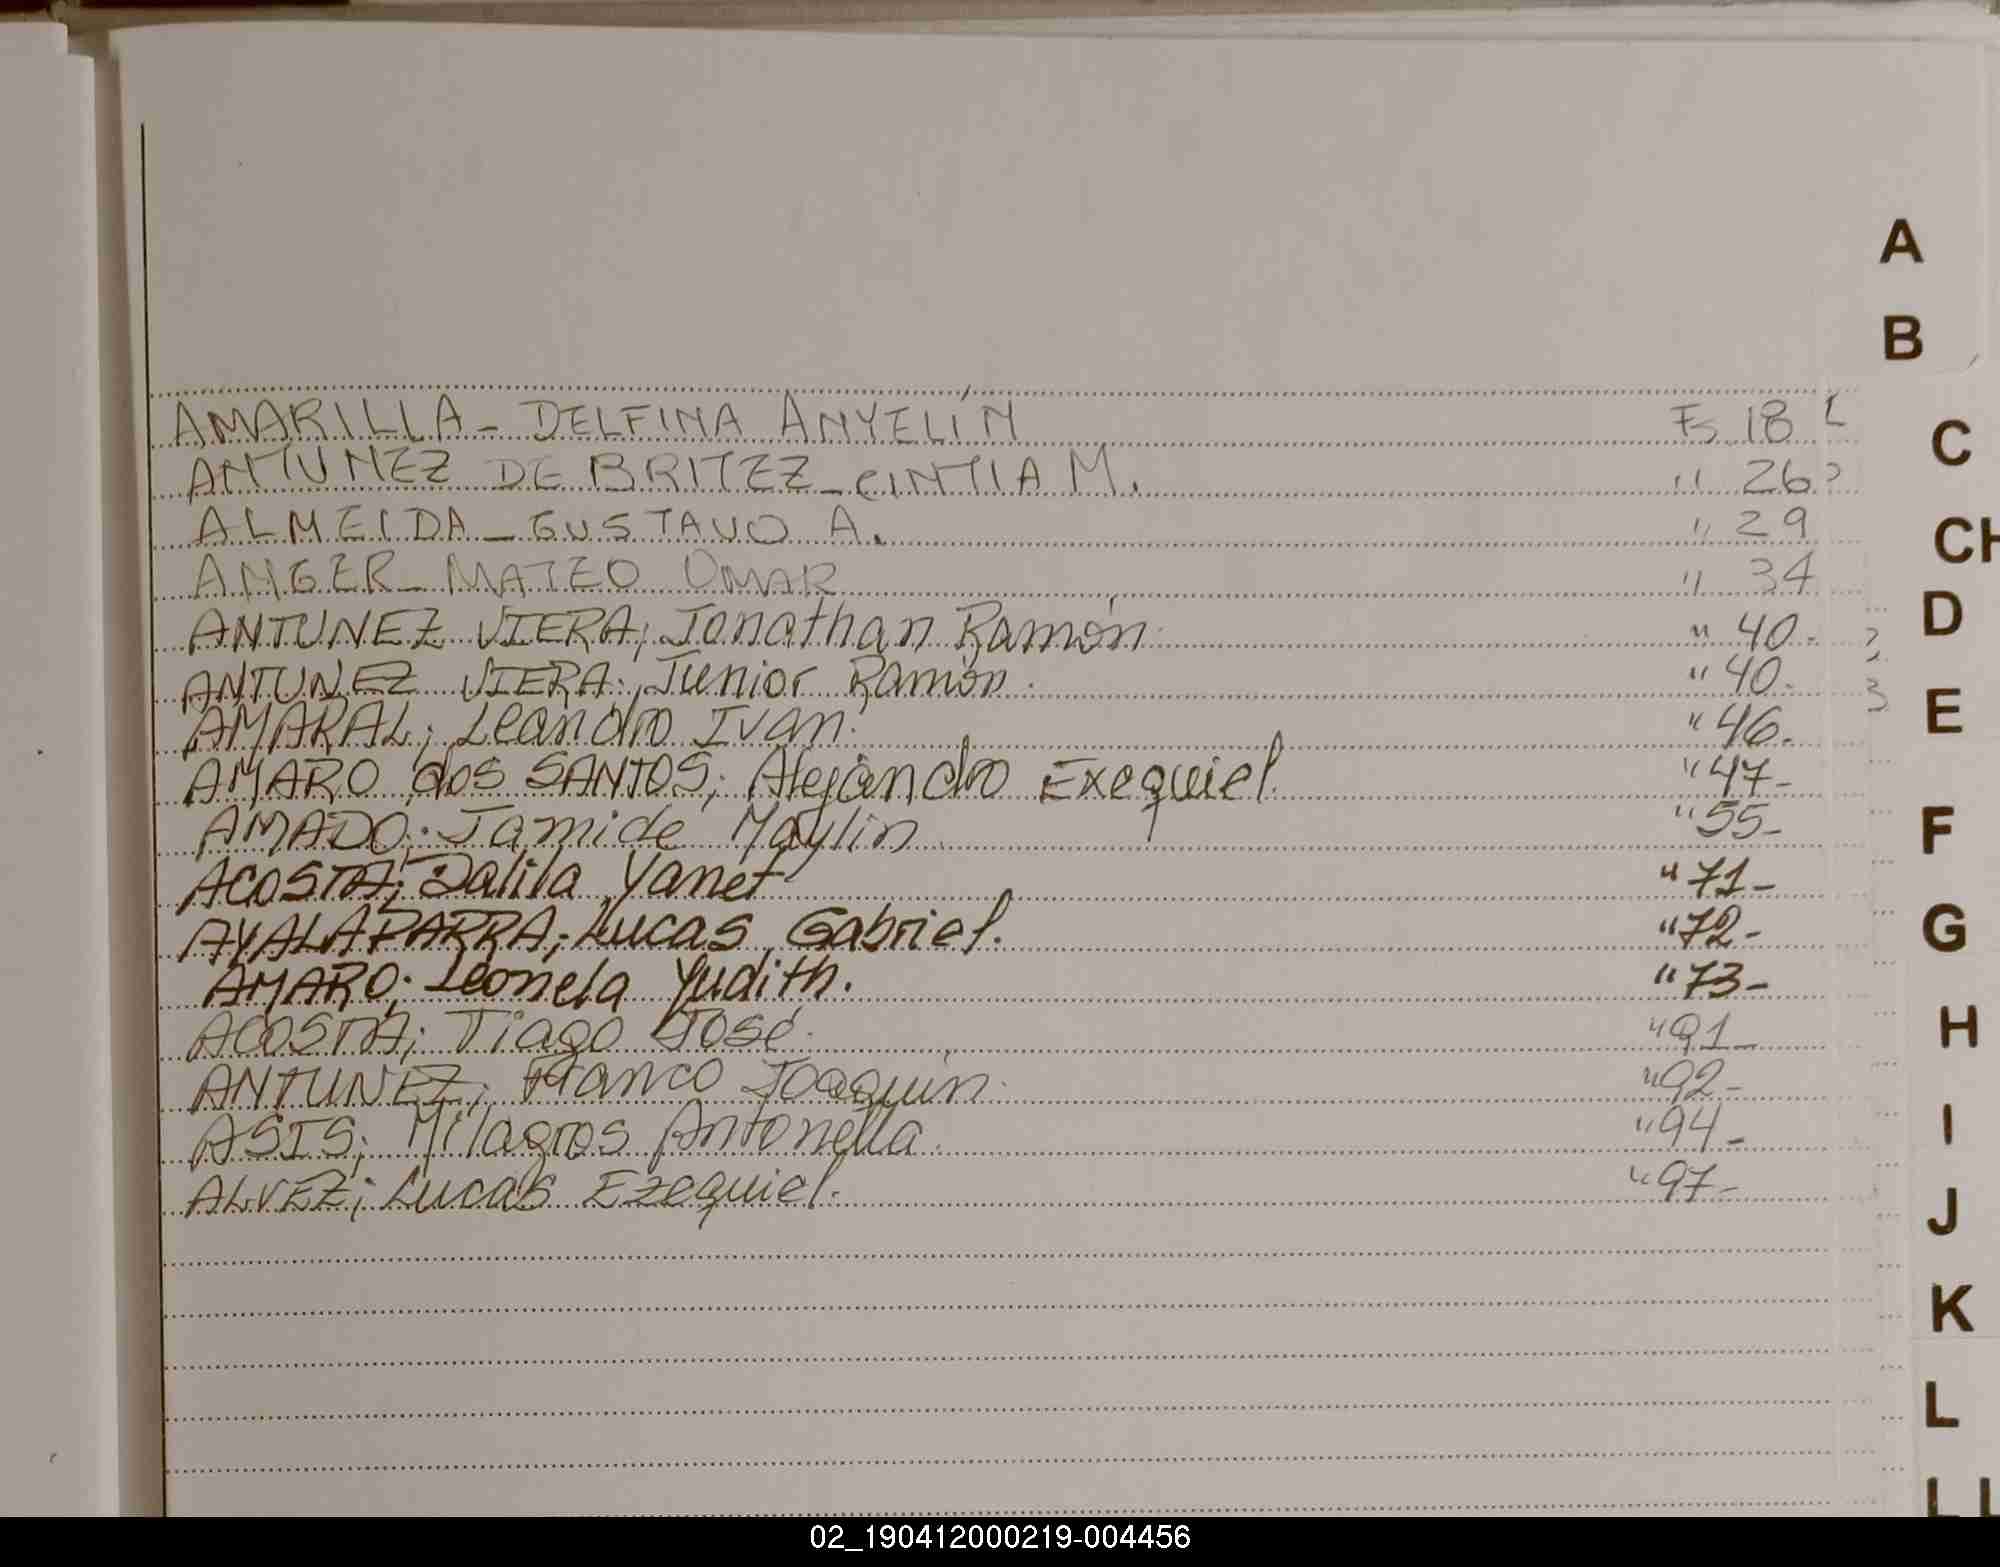 AMARILLA - DELFINA ANYELÍN Fs 18
ANTUNEZ DE BRITEZ - CINTIA M. " 26
ALMEIDA - GUSTAVO A. " 29
ANGER - MATEO OMAR " 34
ANTUNEZ VIERA; Jonathan Ramón. " 40-
ANTUNEZ VIERA; Junior Ramón. " 40-
AMARAL; Leandro Ivan. " 46-
AMARO dos SANTOS; Alejandro Exequiel. " 47-
AMADO; Jamide Maylin " 55-
ACOSTA; Dalila Yanet " 71-
AYALA PARRA; Lucas Gabriel. " 72-
AMARO; Leonela Yudith. " 73-
ACOSTA; Tiago José. " 91-
ANTUNEZ; Franco Joaquín. " 92-
ASIS; Milagros Antonella. " 94-
ALVEZ; Lucas Ezequiel. " 97-
A
B
C
CH
D
E
F
G
H
I
J
K
L
LL
02_190412000219-004456